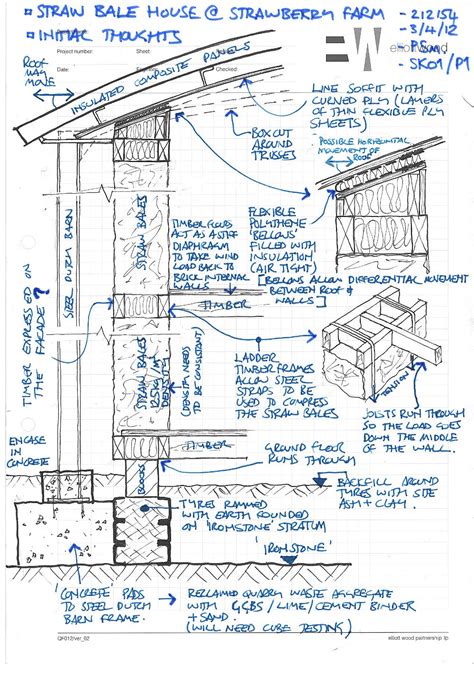 STRAW BALE HOUSE @ STRAWBERRY FARM
INITIAL THOUGHTS
- 212154
- 3/4/12
- SK01/P1
Project number:
Sheet
Date:
eliot wood
ROOF
MAY
MOVE
INSULATED COMPOSITE PANELS
LINE SOFFIT WITH
CURVED PLY (LAYERS
OF THIN FLEXIBLE PLY
SHEETS)
BOX CUT
AROUND
TRUSSES
POSSIBLE HORIZONTAL
MOVEMENT OF
ROOF
STEEL DUTCH BARN
STRAW BALES
TIMBER FLOORS
ACT AS A STIFF
DIAPHRAGM
TO TAKE WIND
LOAD BACK TO
BRICK INTERNAL
WALLS
FLEXIBLE
POLYTHENE
'BELLOWS'
FILLED WITH
INSULATION
(AIR TIGHT)
[BELLOWS ALLOW DIFFERENTIAL MOVEMENT
BETWEEN ROOF &
WALLS]
TIMBER EXPRESSED ON
THE FACADE?
TIMBER
STRAW BALES
DENSITY
(DENSITY NEEDS
TO BE CONSISTENT)
LADDER
TIMBER FRAMES
ALLOW STEEL
STRAPS TO BE
USED TO COMPRESS
THE STRAW BALES
TENSION
JOISTS RUN THROUGH
SO THE LOAD GOES
DOWN THE MIDDLE
OF THE WALL.
TIMBER
ENCASE IN
CONCRETE
BLOCKS
GROUND FLOOR
RUNS THROUGH
BACKFILL AROUND
TYRES WITH SITE
ASH + CLAY.
TYRES RAMMED
WITH EARTH FOUNDED
ON 'IRONSTONE' STRATUM
'IRONSTONE'
'CONCRETE' PADS
TO STEEL DUTCH
BARN FRAME.
RECLAIMED QUARRY WASTE AGGREGATE
WITH GGBS / LIME / CEMENT BINDER
+ SAND.
(WILL NEED CUBE TESTING)
QF012/ver_02
eliot wood partnership llp